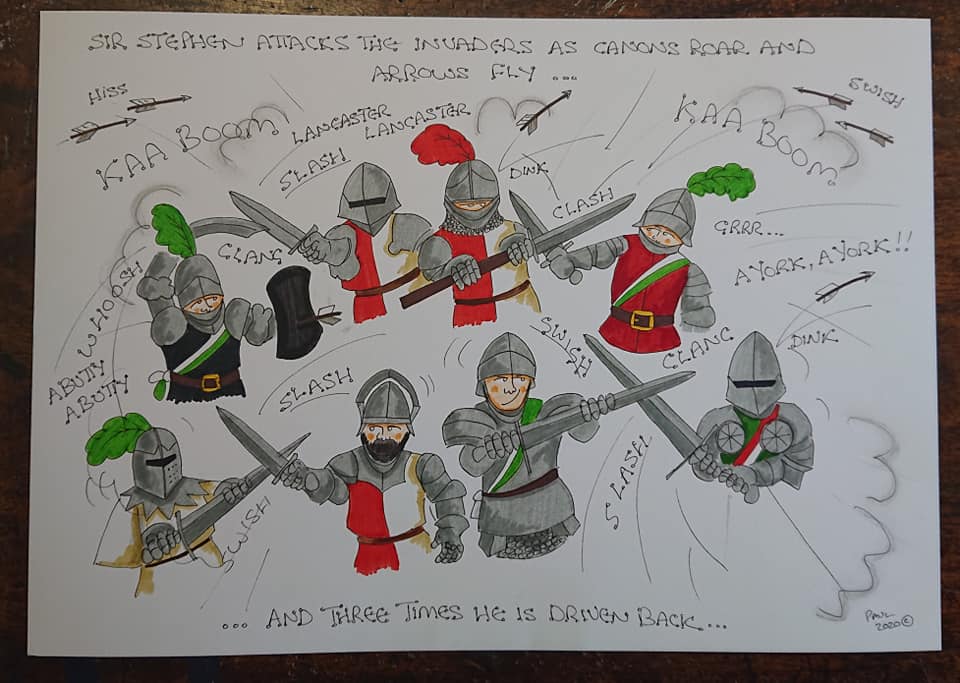 SIR STEPHEN ATTACKS THE INVADERS AS CANONS ROAR AND
ARROWS FLY ...
HISS
SWISH
KAA BOOM
LANCASTER
LANCASTER
KAA BOOM
SLASH
DINK
CLASH
CLANG
GRRR...
A YORK, A YORK!!
WHOOSH
ABUTY
ABUTY
SLASH
SWISH
CLANG
DINK
SLASH
SWISH
... AND THREE TIMES HE IS DRIVEN BACK...
PAUL
2020 ©